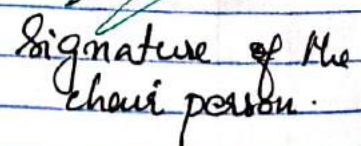 Signature of the
chair person.